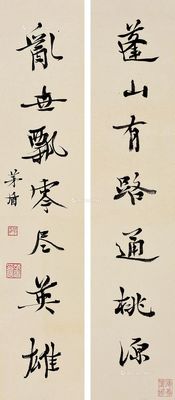 蓬山有路通桃源
乱世飘零尽英雄
茅盾